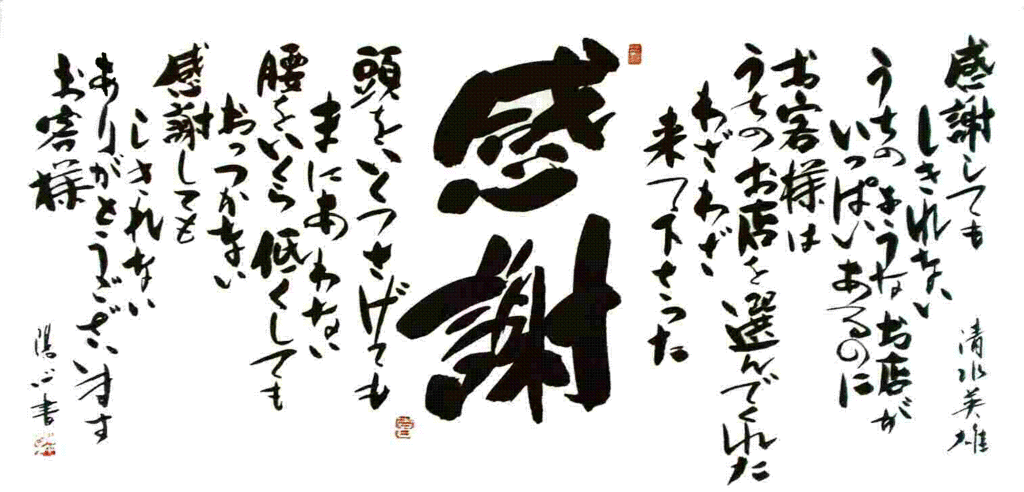 感謝しても
しきれない
清水英雄
うちのようなお店が
いっぱいあるのに
お客様は
うちのお店を選んでくれた
わざわざ
来て下さった
感謝
頭をいくつさげても
まにあわない
腰をいくら低くしても
おっつかない
感謝しても
しきれない
ありがとうございます
お客様